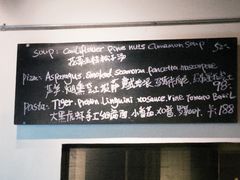 Soup: Cauliflower pine nuts Cinnamon soup 52.-
花菜玉桂松子汤
Pizza: Asparagus, smoked scamorza pancetta mascarpone
芦笋 烟熏 芝士 98.-
Pasta: Tiger prawn Linguini xo sauce, Vine Tomato Basil
大黑虎虾手工细扁面, 小番茄, XO酱, 罗勒 188.-